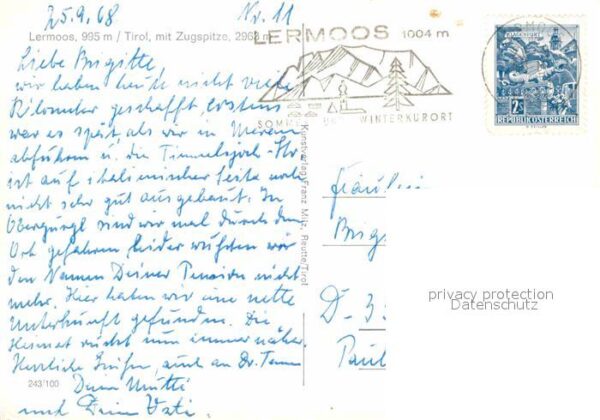 25.9.68 Nr. 11
Lermoos, 995 m / Tirol, mit Zugspitze, 2963 m
Liebe Brigitte
wir haben heute nicht viele
Kilometer geschafft erstens
war es spät, als wir in Meran
abfuhren u. die Timmelsjoch-Str
ist auf italienischer Seite noch
nicht sehr gut ausgebaut. In
Obergurgl sind wir mal durch den
Ort gefahren leider wußten wir
den Namen Deiner Pension nicht
mehr. Hier haben wir eine nette
Unterkunft gefunden. Die
Heimat rückt nun immer näher.
Herzliche Grüße, auch an
Deine Mutti
und Dein Vati.
243/100
Kunstverlag Franz Milz, Reutte/Tirol
LERMOOS 1004 m
SOMMER WINTERKURORT
2 S
REPUBLIK ÖSTERREICH
Fräulein
Brig
D-3
Paul
privacy protection
Datenschutz